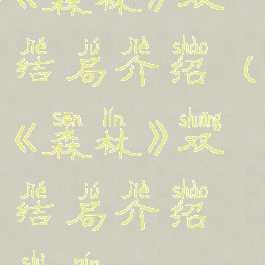 《森林》双
jié jú jiè shào
结局介绍（
sēn lín shuāng
《森林》双
jié jú jiè shào
结局介绍
shì pín